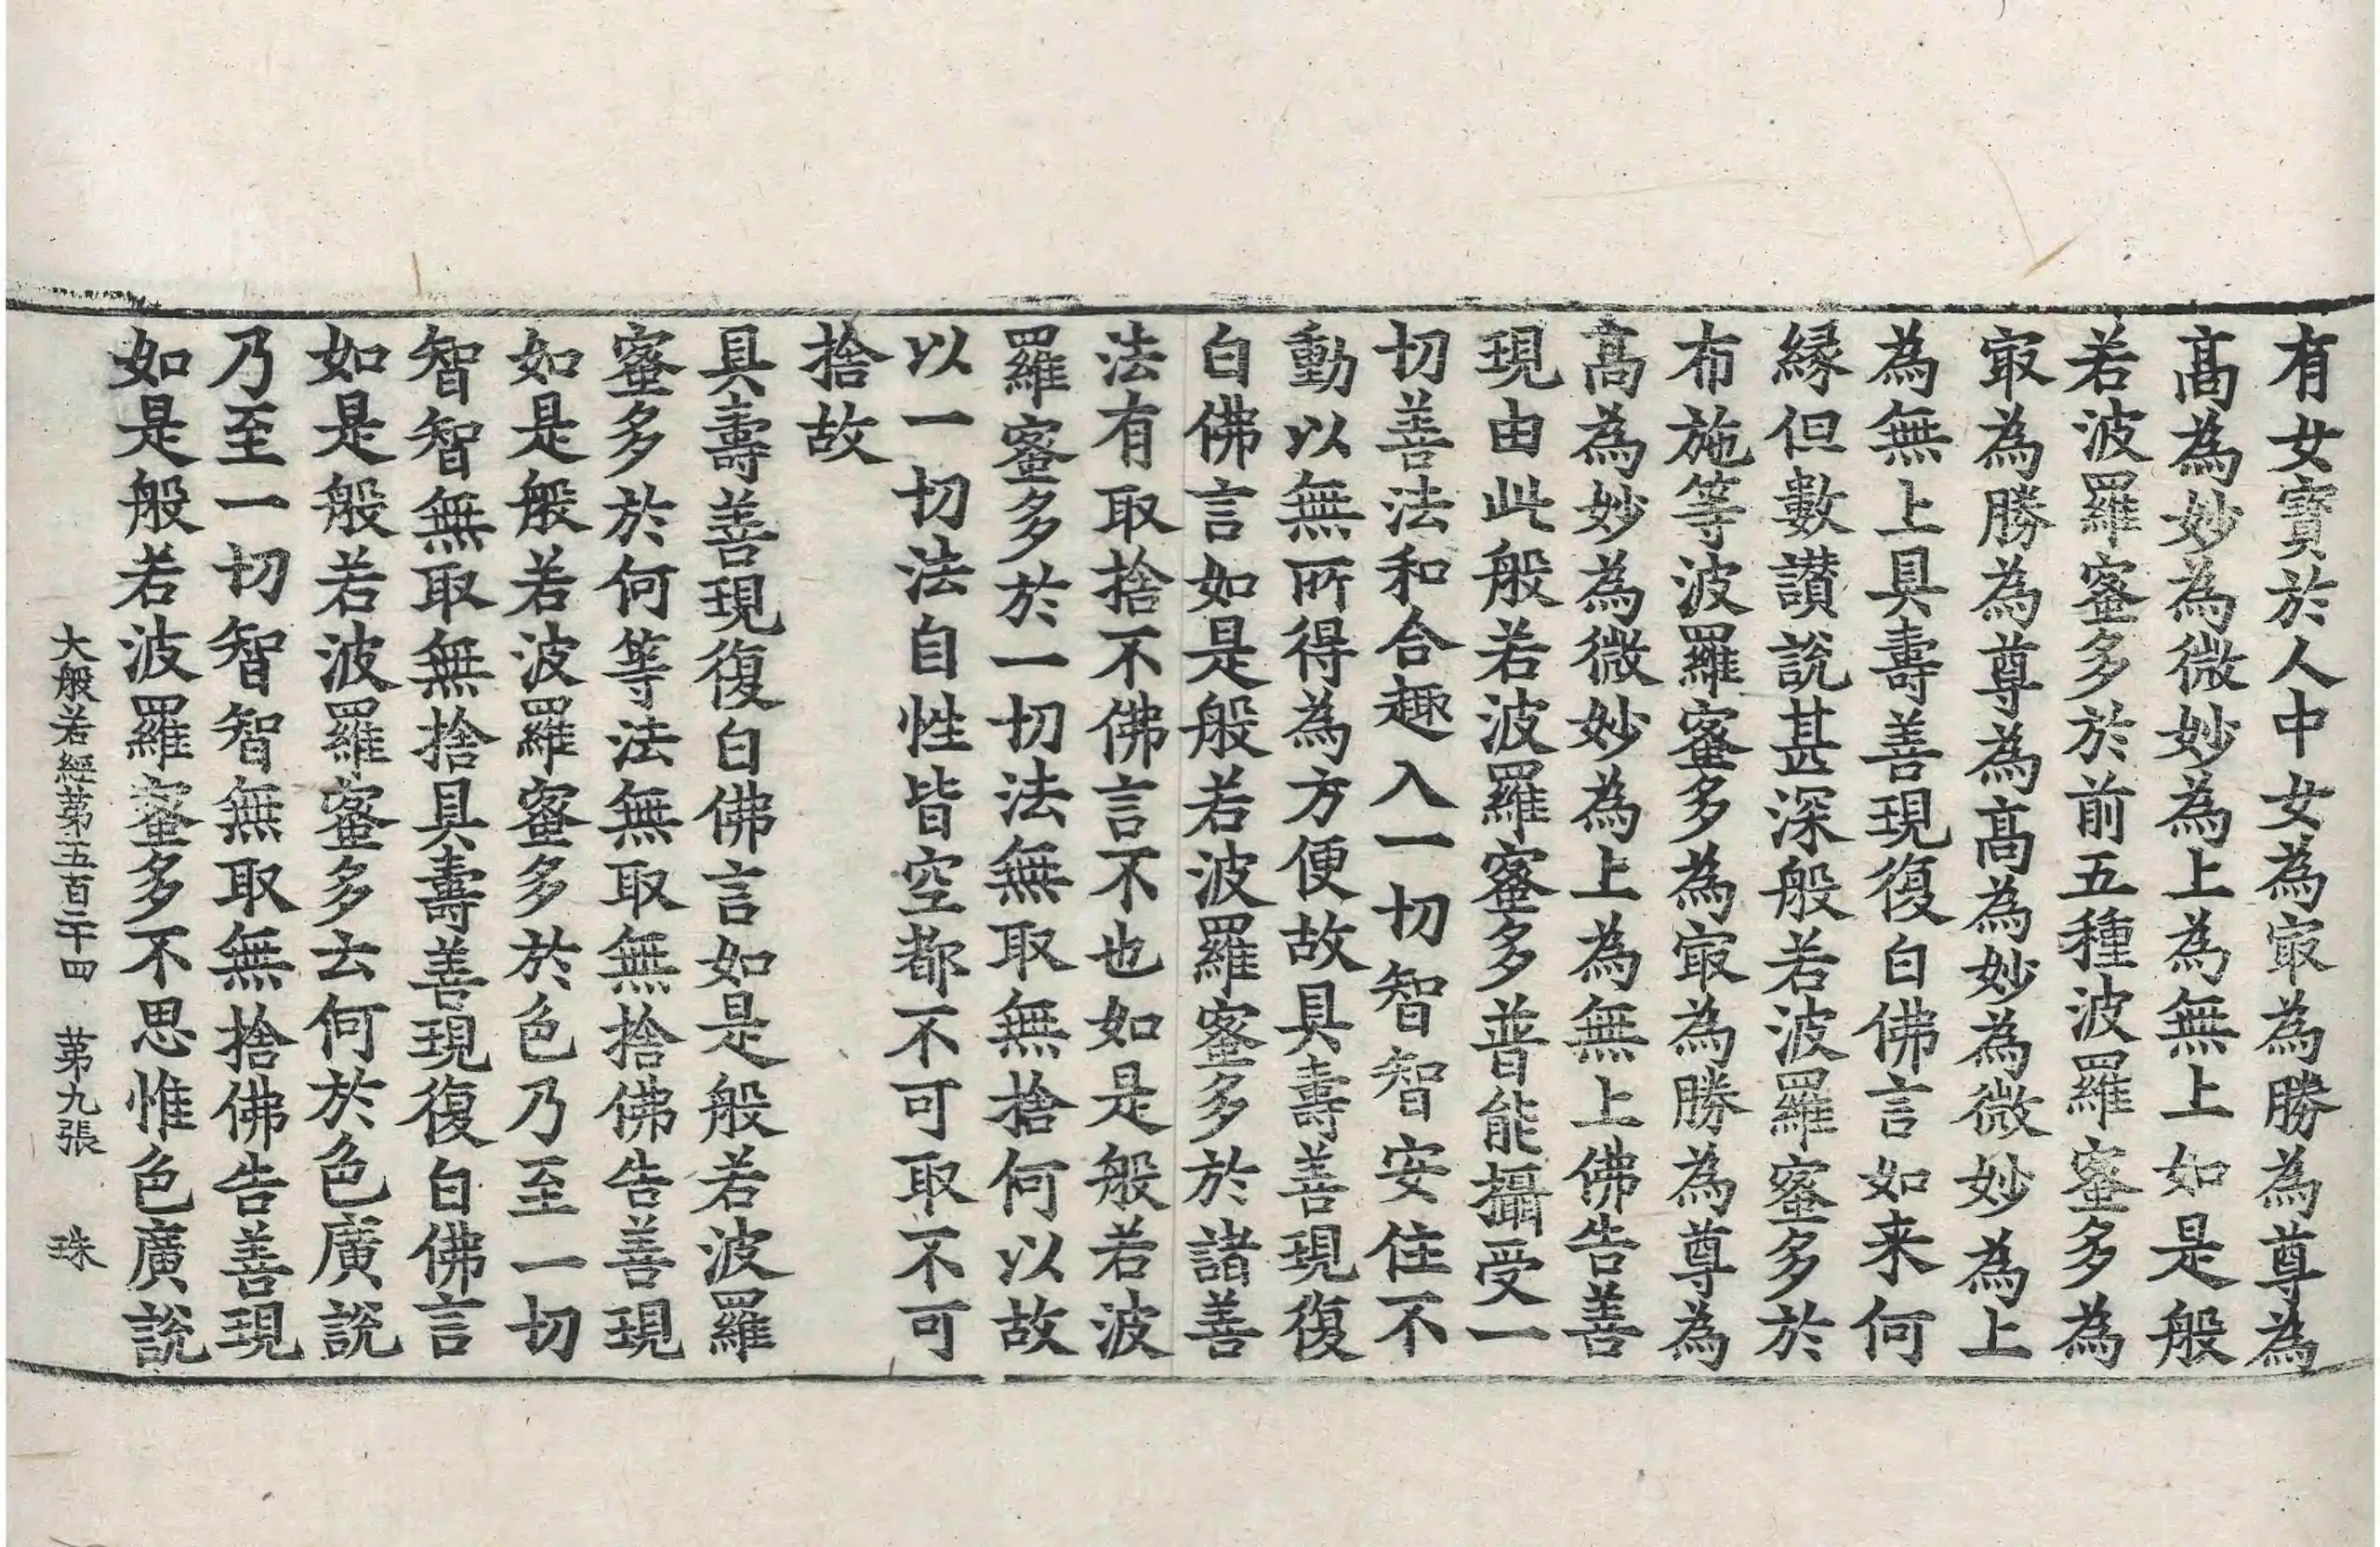 有女寶於人中女為㝡為勝為尊為
髙為妙為微妙為上為無上如是般
若波羅蜜多於前五種波羅蜜多為
㝡為勝為尊為髙為妙為微妙為上
為無上具壽善現復白佛言如来何
縁但數讃說甚深般若波羅蜜多於
布施等波羅蜜多為㝡為勝為尊為
髙為妙為微妙為上為無上佛告善
現由此般若波羅蜜多普能攝受一
切善法和合趣入一切智智安住不
動以無所得為方便故具壽善現復
白佛言如是般若波羅蜜多於諸善
法有取捨不佛言不也如是般若波
羅蜜多於一切法無取無捨何以故
以一切法自性皆空都不可取不可
捨故
具壽善現復白佛言如是般若波羅
蜜多於何等法無取無捨佛告善現
如是般若波羅蜜多於色乃至一切
智智無取無捨具壽善現復白佛言
如是般若波羅蜜多云何於色廣說
乃至一切智智無取無捨佛告善現
如是般若波羅蜜多不思惟色廣說
大般若經第五百二十四 第九張 珠